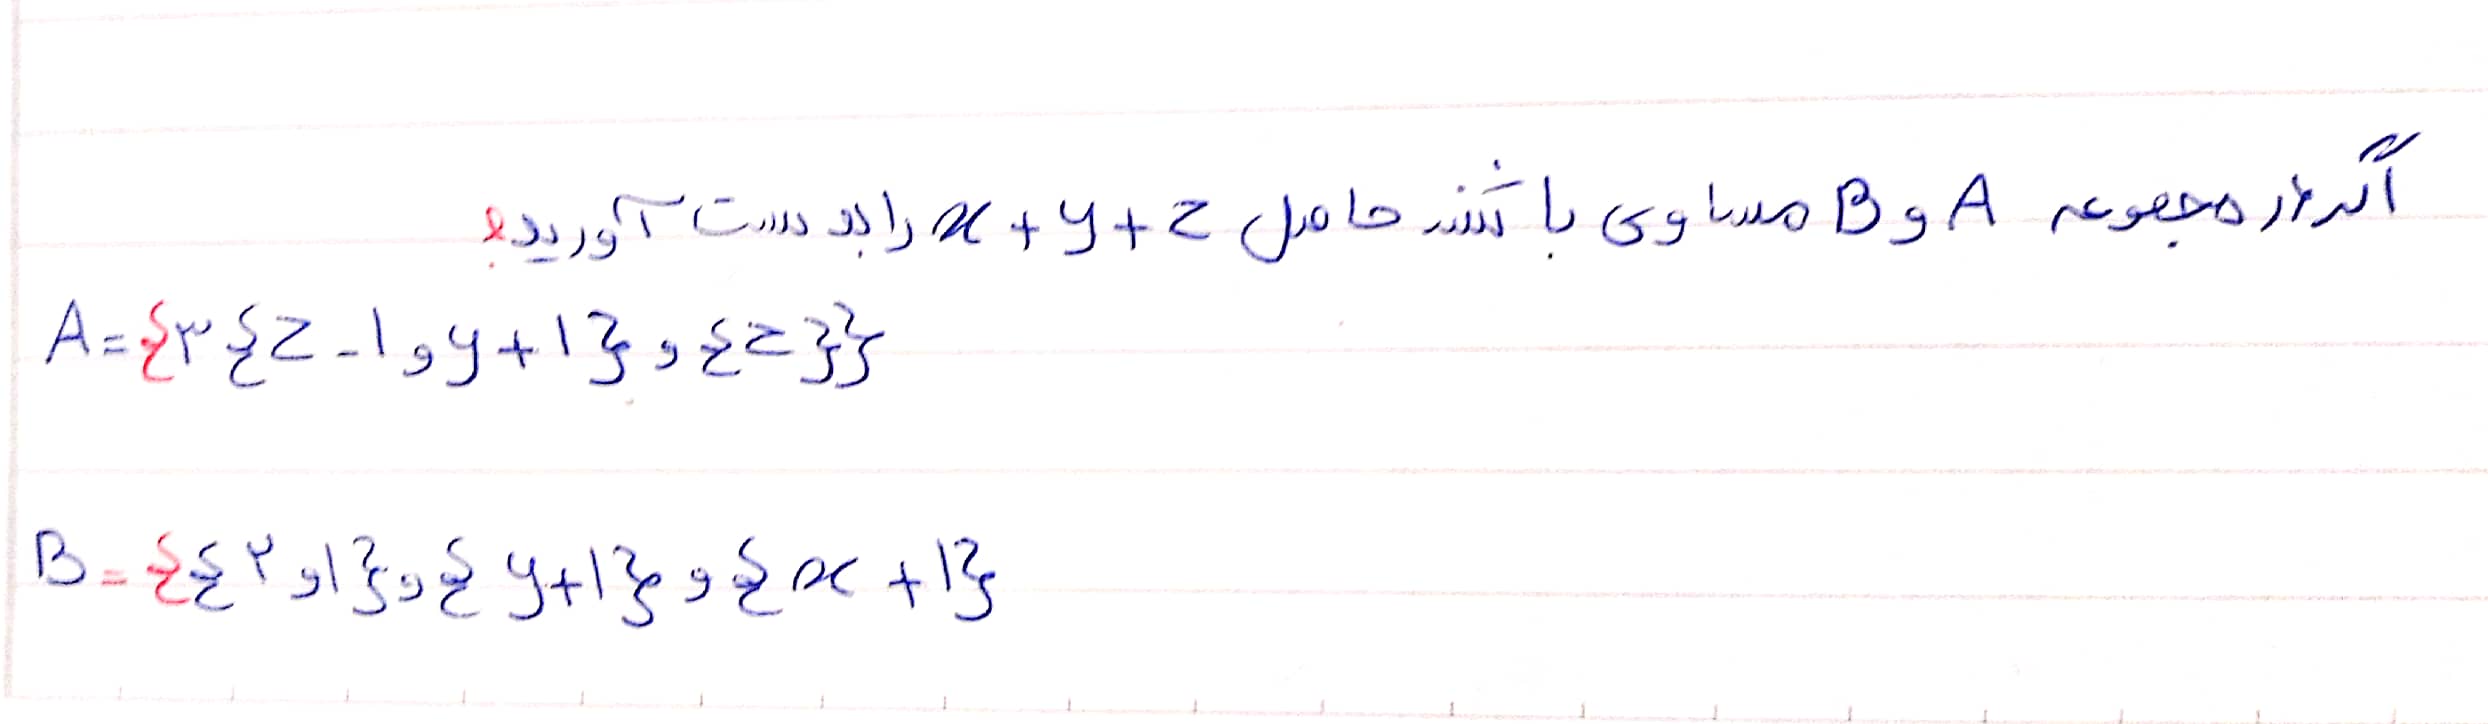 اگر دو مجموعه A و B مساوی باشند حاصل x+y+z را بدست آورید؟
A={۳{z-1 و y+1} و {z}}
B={{۲ و 1} و {y+1} و {x+1}